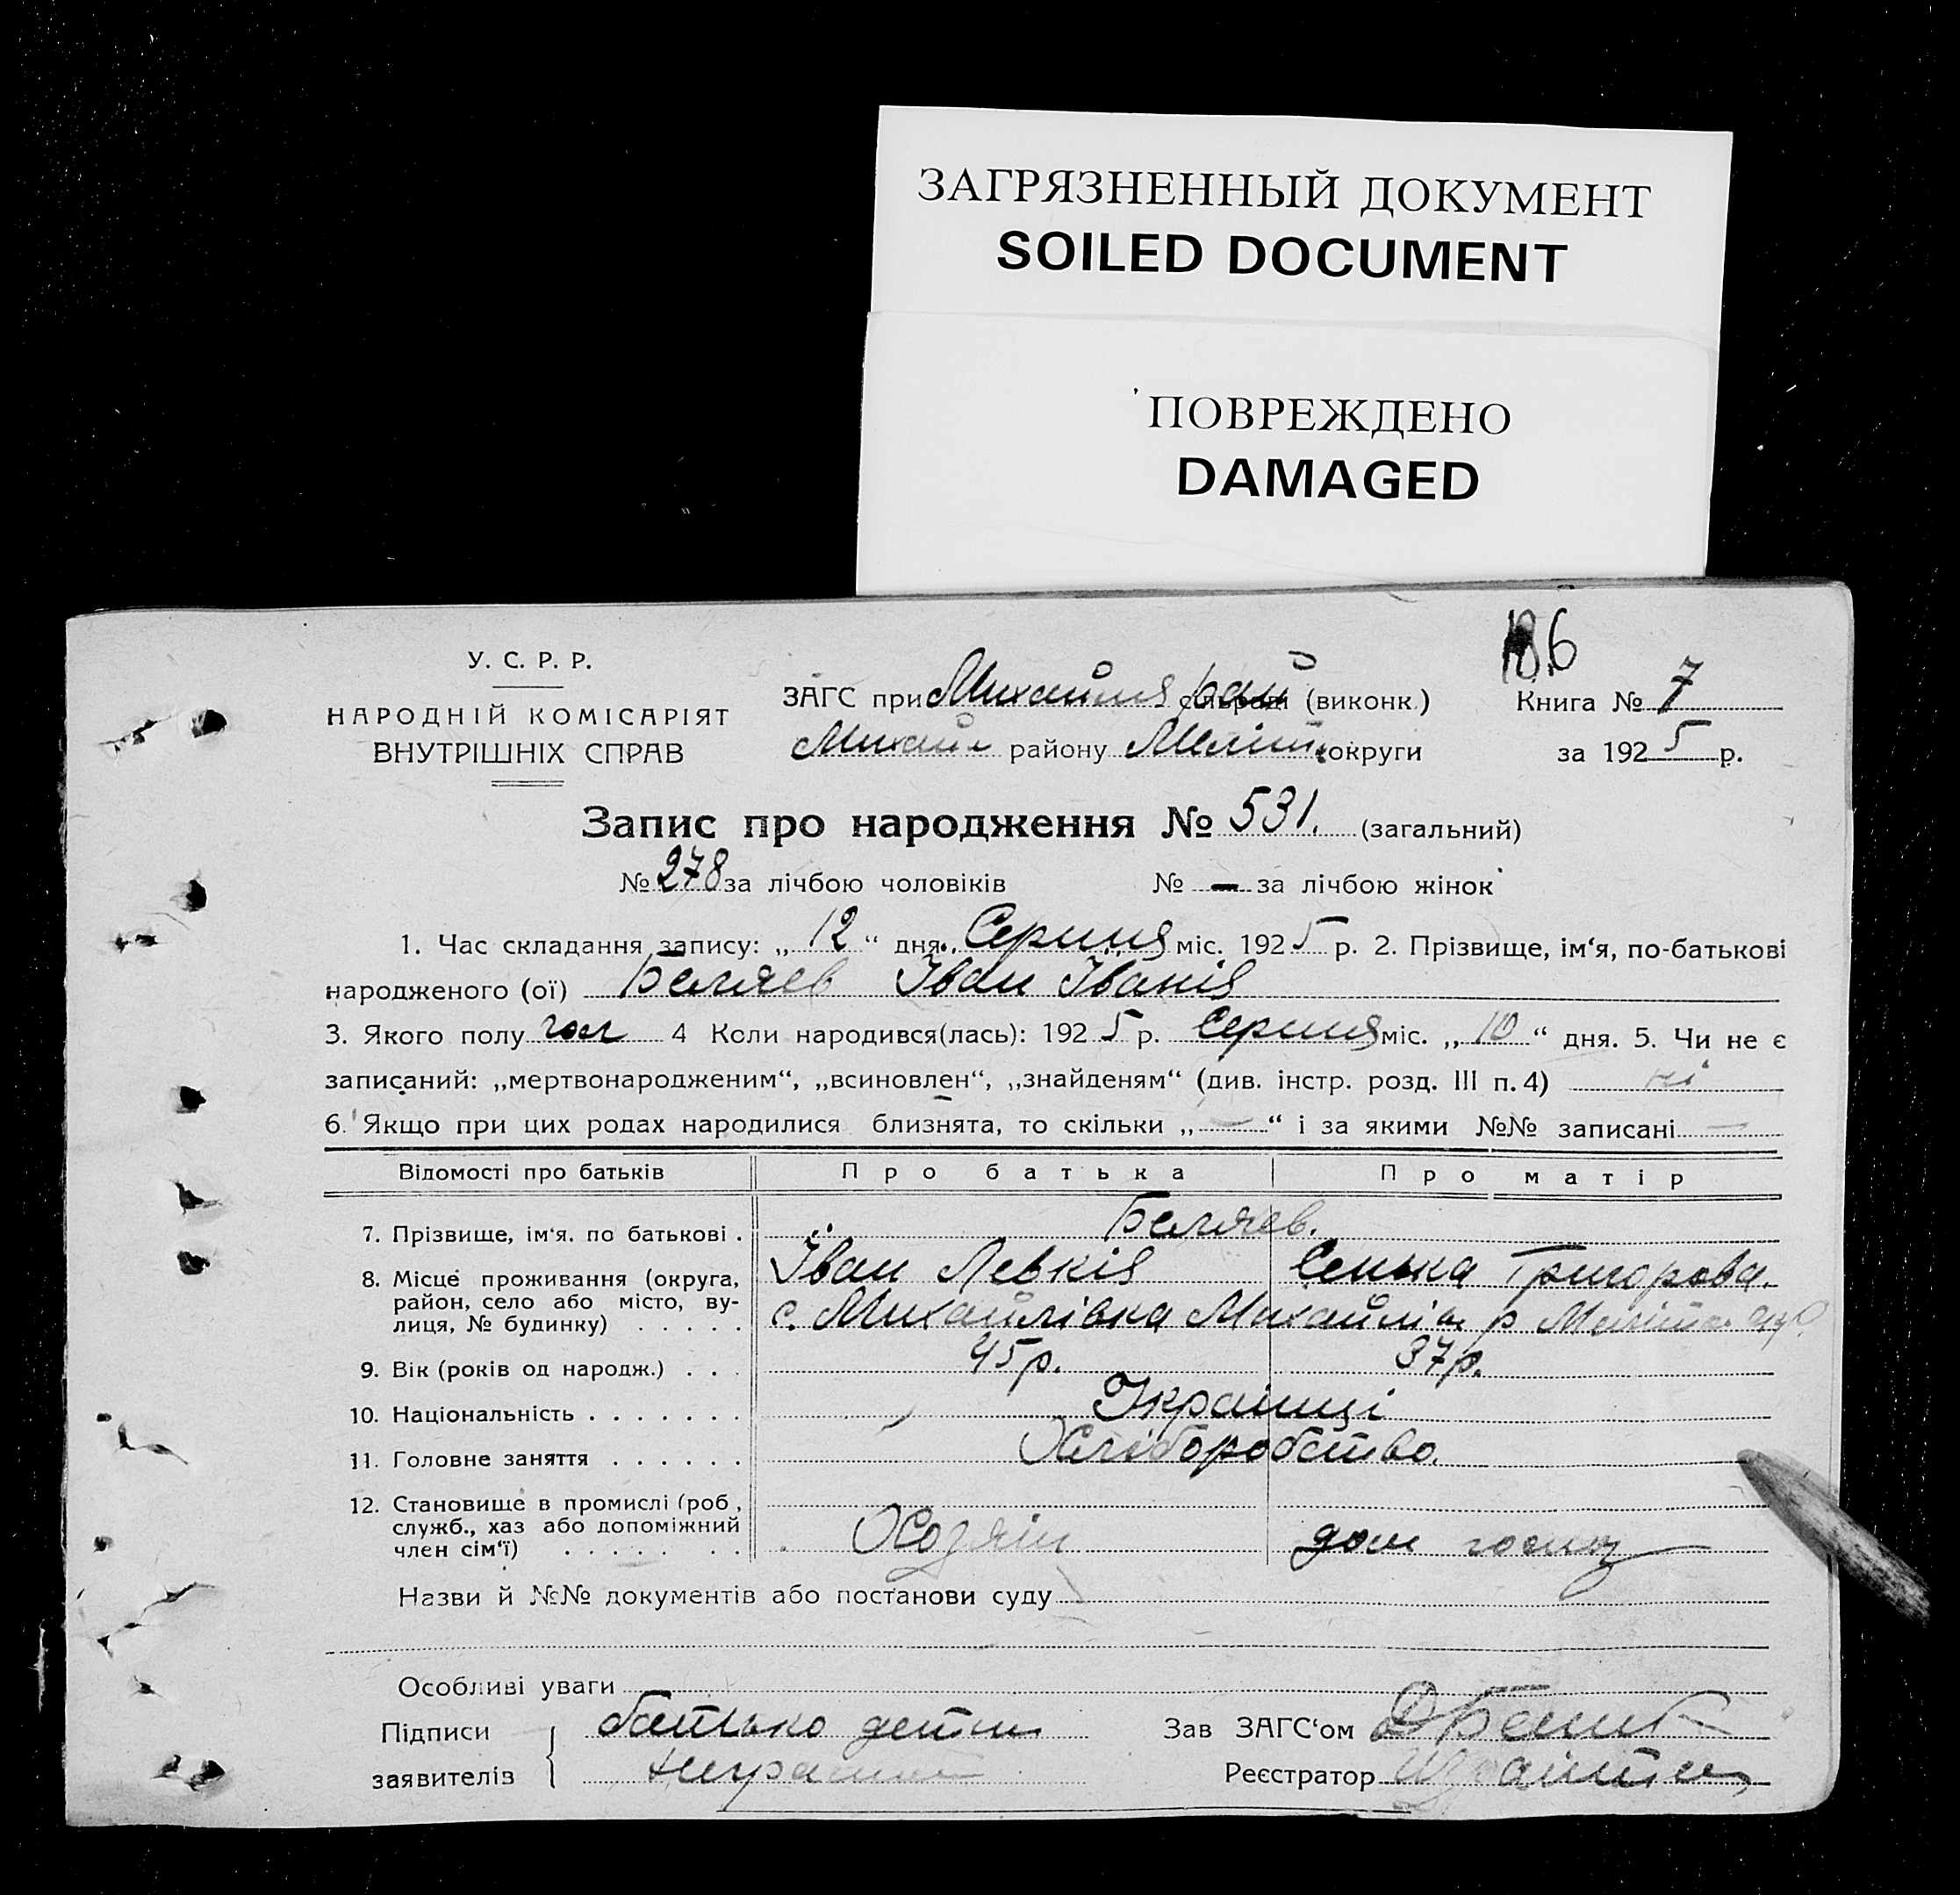 ЗАГРЯЗНЕННЫЙ ДОКУМЕНТ
SOILED DOCUMENT
ПОВРЕЖДЕНО
DAMAGED
186
У. С. Р. Р.
НАРОДНІЙ КОМІСАРІЯТ
ВНУТРІШНІХ СПРАВ
ЗАГС при Михайл рай (виконк.)
Михайл району Меліт. округи
Книга № 7
за 1925 р.
Запис про народження № 531. (загальний)
№ 278 за лічбою чоловіків № — за лічбою жінок
1. Час складання запису: „ 12 “ дня Серпня міс. 1925 р. 2. Прізвище, ім‘я, по-батькові
народженого (ої) Беляев Іван Іванів
3. Якого полу чол 4 Коли народився(лась): 1925 р. Серпня міс. „ 10 “ дня. 5. Чи не є
записаний: „мертвонародженим“, „всиновлен“, „знайденям“ (див. інстр. розд. III п. 4) ні
6. Якщо при цих родах народилися близнята, то скільки „ — “ і за якими №№ записані —
Відомості про батьків Про батька Про матір
7. Прізвище, ім‘я. по батькові . Беляев.
Іван Левків Сенька Григорова.
8. Місце проживання (округа, район, село або місто, ву-
лиця, № будинку) . . . . . с. Михайлівка Михайлів р Меліт. окр.
9. Вік (років од народж.) . . . 45 р. 37 р.
10. Національність . . . . . . . Українці
11. Головне заняття . . . . . . Хліборобство.
12. Становище в промислі (роб.,
служб., хаз або допоміжний
член сім‘ї) . . . . . . . Хозяін дом господ
Назви й №№ документів або постанови суду
Особливі уваги
Підписи батько
заявителів
Зав ЗАГС‘ом
Реєстратор